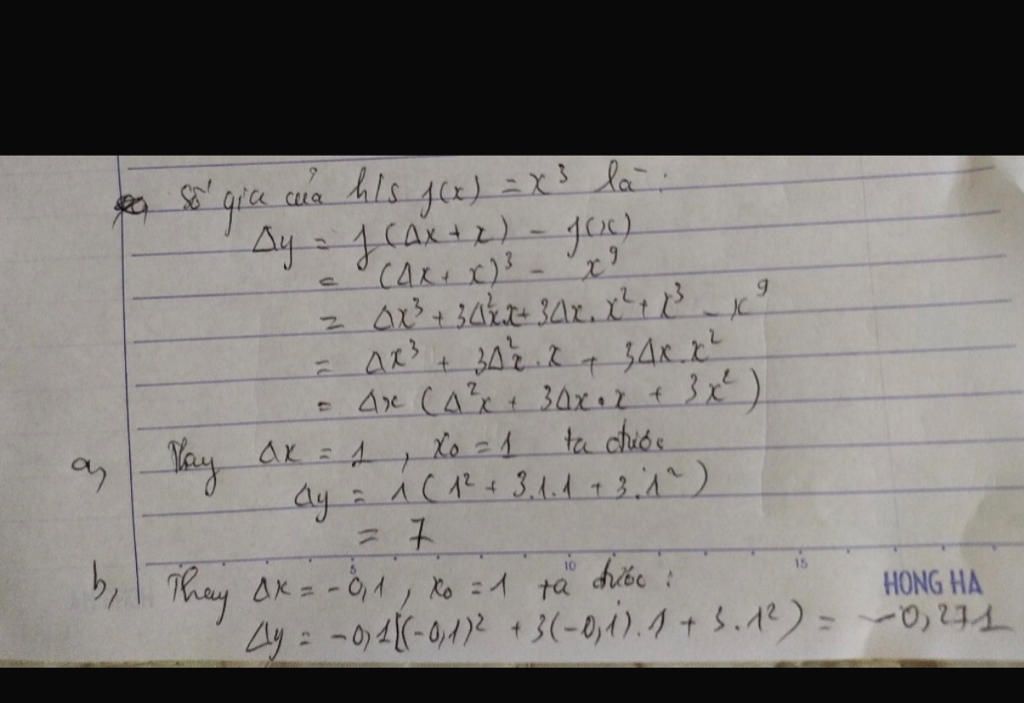 Số gia của h/s f(x) = x³ là:
Δy = f(Δx + x) - f(x)
= (Δx + x)³ - x³
= Δx³ + 3Δ²x.x + 3Δx.x² + x³ - x³
= Δx³ + 3Δ²x.x + 3Δx.x²
= Δx (Δ²x + 3Δx.x + 3x²)
a, Thay Δx = 1, x₀ = 1 ta được
Δy = 1(1² + 3.1.1 + 3.1²)
= 7
5 10 15
b, Thay Δx = -0,1, x₀ = 1 ta được:
HONG HA
Δy = -0,1[(-0,1)² + 3(-0,1).1 + 3.1²) = -0,271